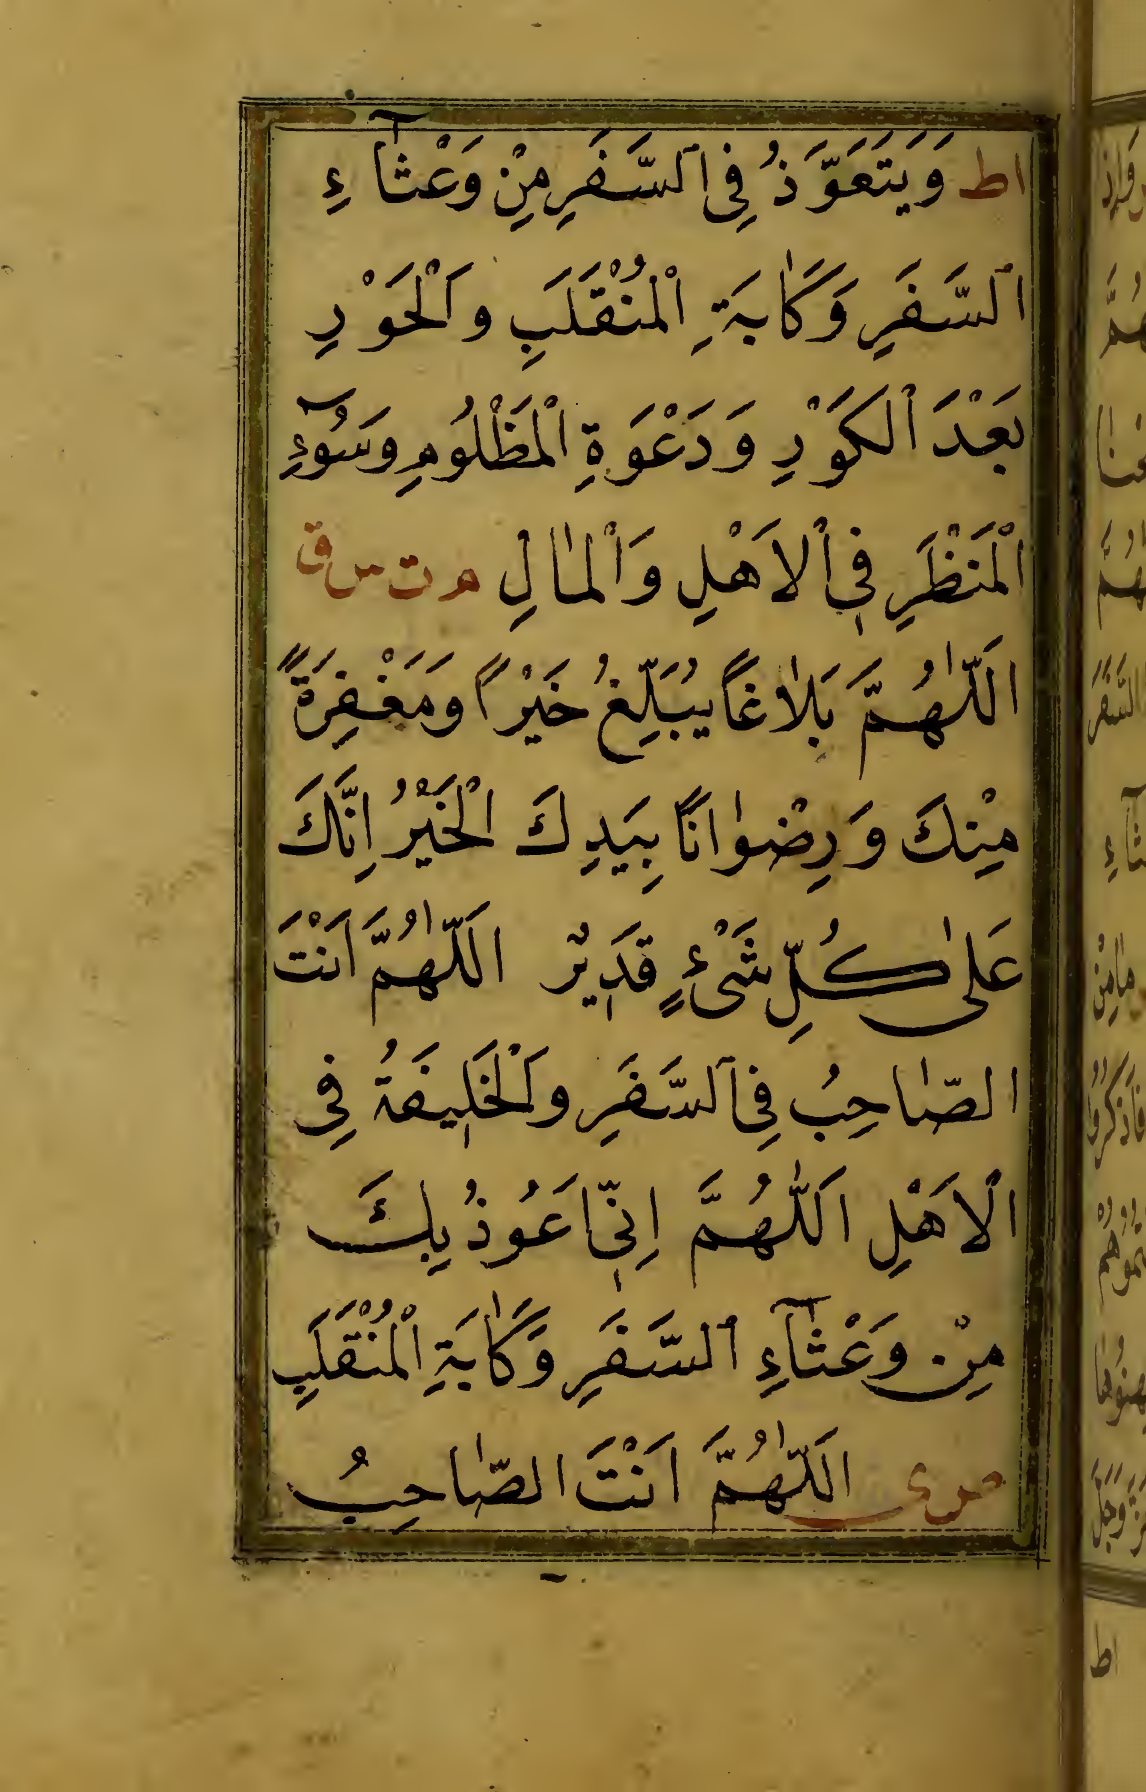 اط وَيَتَعَوَّذُ فِي السَّفَرِ مِنْ وَعْثَآءِ
السَّفَرِ وَكَاٰبَةِ الْمُنْقَلَبِ وَالْحَوْرِ
بَعْدَ الْكَوْرِ وَدَعْوَةِ الْمَظْلُومِ وَسُوٓءِ
الْمَنْظَرِ فِي الْاَهْلِ وَالْمَالِ م ت س ق
اَللّٰهُمَّ بَلَاغًا يُبَلِّغُ خَيْرًا وَمَغْفِرَةً
مِنْكَ وَرِضْوَانًا بِيَدِكَ الْخَيْرُ اِنَّكَ
عَلٰى كُلِّ شَىْءٍ قَدِيْرٌ اَللّٰهُمَّ اَنْتَ
الصَّاحِبُ فِي السَّفَرِ وَالْخَلِيفَةُ فِي
الْاَهْلِ اَللّٰهُمَّ اِنِّي اَعُوذُ بِكَ
مِنْ وَعْثَآءِ السَّفَرِ وَكَاٰبَةِ الْمُنْقَلَبِ
ص ى اَللّٰهُمَّ اَنْتَ الصَّاحِبُ
اط